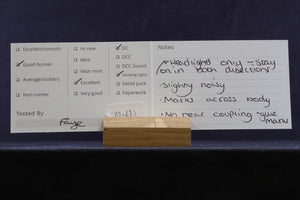 Excellent/smooth
Good Runner
Average/stutters
Non-runner
Tested By
Faye
As new
Mint
Near mint
Excellent
Very good
DC
DCC
DCC Sound
Working Lights
Detail pack
Paperwork
Notes
Headlights only - stay
on in both directions
- Slightly noisy
- Marks across body
- No rear coupling - glue
marks